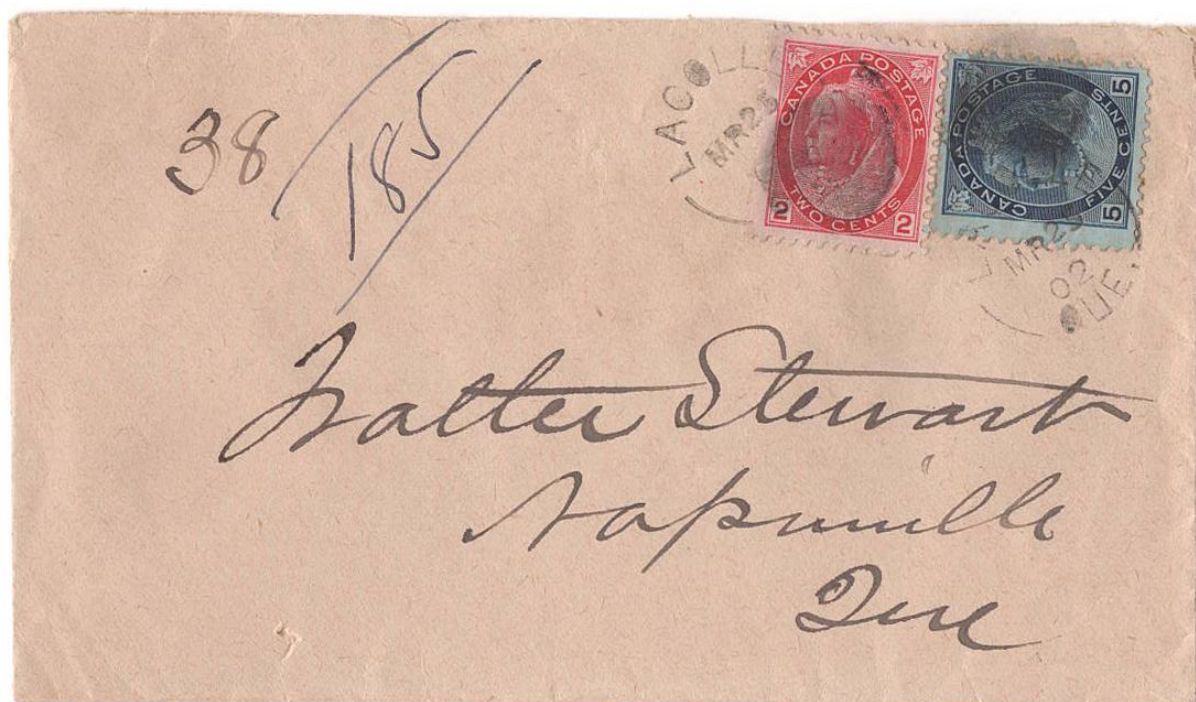 38 / 185 /
LACOLLE
MR 25
CANADA POSTAGE
TWO CENTS
2 2
CANADA POSTAGE
FIVE CENTS
5 5
MR 25
02
QUE.
Walter Stewart
Napierville
Que